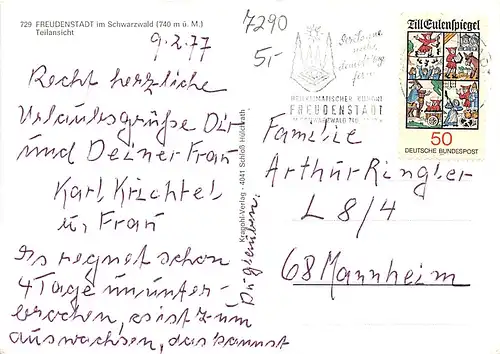 729 FREUDENSTADT im Schwarzwald (740 m ü. M.)
Teilansicht
9.2.77
Recht herzliche
Urlaubsgrüße Dir
und Deiner Frau
Karl, Krichtel
u, Frau
Es regnet schon
4 Tage ununter-
brochen, es ist zum
auswachsen, das kannst
Du glauben.
Kragohl-Verlag - 4041 Schloß Hülchrath
7290
5,-
HEILKLIMATISCHER KURORT
FREUDENSTADT
Till Eulenspiegel
50
DEUTSCHE BUNDESPOST
Familie
Arthur Ringler
L 8/4
68 Mannheim